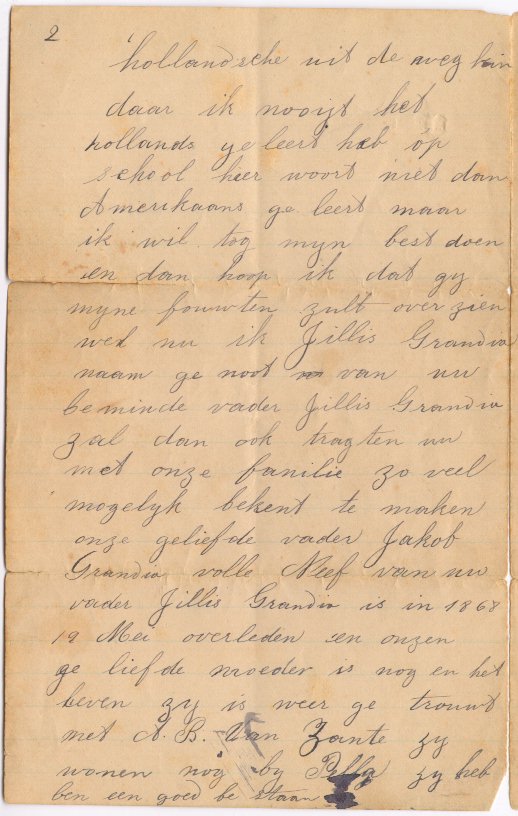 2
hollandsche uit de weg kin
daar ik nooijt het
hollands ge leert heb op
school heer woort niet dan
Amerikaans ge leert maar
ik wil tog myn best doen
en dan hoop ik dat gy
myne fouwten zult over zien
wel nu ik Jillis Grandia
naam ge noot van uw
beminde vader Jillis Grandia
zal dan ook tragten uw
met onze familie zo veel
mogelyk bekent te maken
onze geliefde vader Jakob
Grandia volle Neef van uw
vader Jillis Grandia is in 1868
19 Mei overleden en onzen
ge liefde moeder is nog en het
leven zy is weer ge trouwt
met A. B. Van Zante zy
wonen nog by Pella zy heb
ben een goed be staan